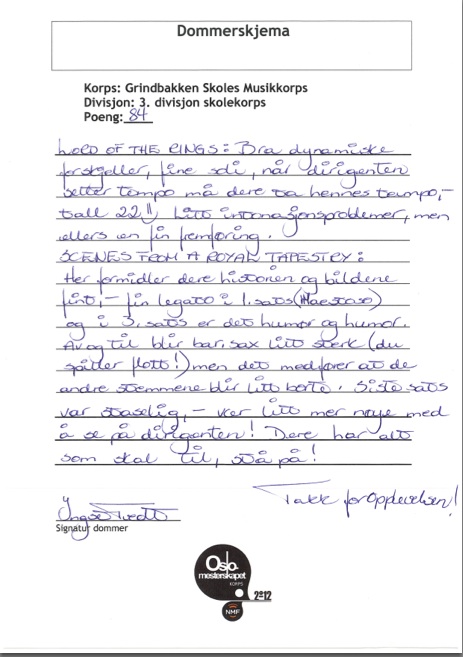 Dommerskjema
Korps: Grindbakken Skoles Musikkorps
Divisjon: 3. divisjon skolekorps
Poeng: 84
LORD OF THE RINGS: Bra dynamiske
forskjeller, fine soli, når dirigenten
setter tempo må dere ta hennes tempo,-
tall 22!! Litt intonasjonsproblemer, men
ellers en fin fremføring.
SCENES FROM A ROYAL TAPESTRY:
Her formidler dere historien og bildene
fint,- fin legato i 1. sats (Maestoso)
og i 3. sats er det humor og humor.
Av og til blir bar.sax litt sterk (du
spiller flott!) men det medfører at de
andre stemmene blir litt borte. Siste sats
var staselig,- vær litt mer nøye med
å se på dirigenten! Dere har alt
som skal til, stå på!
Takk for opplevelsen!
Tvedt
Signatur dommer
Oslo
mesterskapet
KORPS
2012
NMF